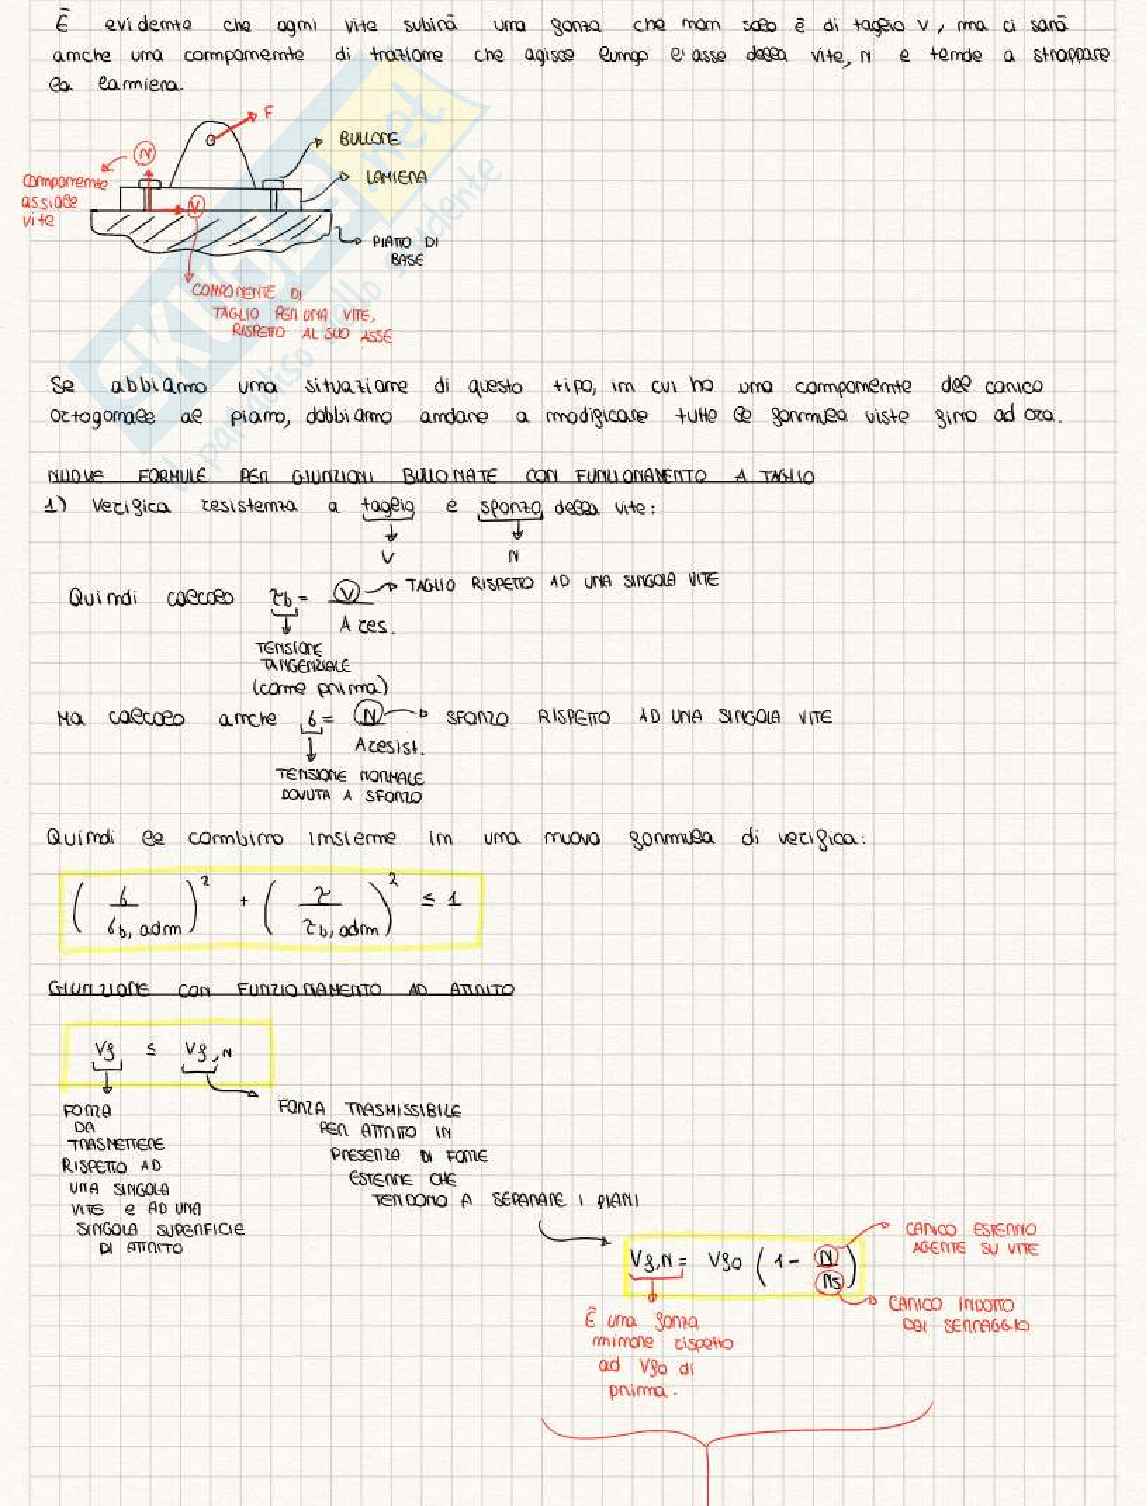 È evidente che ogni vite subirà una forza che non solo è di taglio V, ma ci sarà
anche una componente di trazione che agisce lungo l'asse della vite, N e tende a strappare
la lamiera.
F
N
BULLONE
LAMIERA
Componente
assiale
vite
V
PIATTO DI
BASE
COMPONENTE DI
TAGLIO PER UNA VITE,
RISPETTO AL SUO ASSE
Se abbiamo una situazione di questo tipo, in cui ho una componente del carico
ortogonale al piano, dobbiamo andare a modificare tutte le formule viste fino ad ora.
NUOVE FORMULE PER GIUNZIONI BULLONATE CON FUNZIONAMENTO A TAGLIO
1) Verifica resistenza a taglio e sforzo della vite:
V N
Quindi calcolo τb = V / A res. → TAGLIO RISPETTO AD UNA SINGOLA VITE
TENSIONE
TANGENZIALE
(come prima)
Ma calcolo anche σ = N / A resist. → SFORZO RISPETTO AD UNA SINGOLA VITE
TENSIONE NORMALE
DOVUTA A SFORZO
Quindi le combino insieme in una nuova formula di verifica:
(σ / σb, adm)² + (τ / τb, adm)² ≤ 1
GIUNZIONE CON FUNZIONAMENTO AD ATTRITO
Vf ≤ Vf,N
FORZA
DA
TRASMETTERE
RISPETTO AD
UNA SINGOLA
VITE e AD UNA
SINGOLA SUPERFICIE
DI ATTRITO
FORZA TRASMISSIBILE
PER ATTRITO IN
PRESENZA DI FORZE
ESTERNE CHE
TENDONO A SEPARARE I PIANI
Vf,N = Vfo (1 - N / Ns)
CARICO ESTERNO
AGENTE SU VITE
CARICO INDOTTO
DAL SERRAGGIO
È una forza
minore rispetto
ad Vfo di
prima.
SKUOLA.net
Il paradiso dello studente